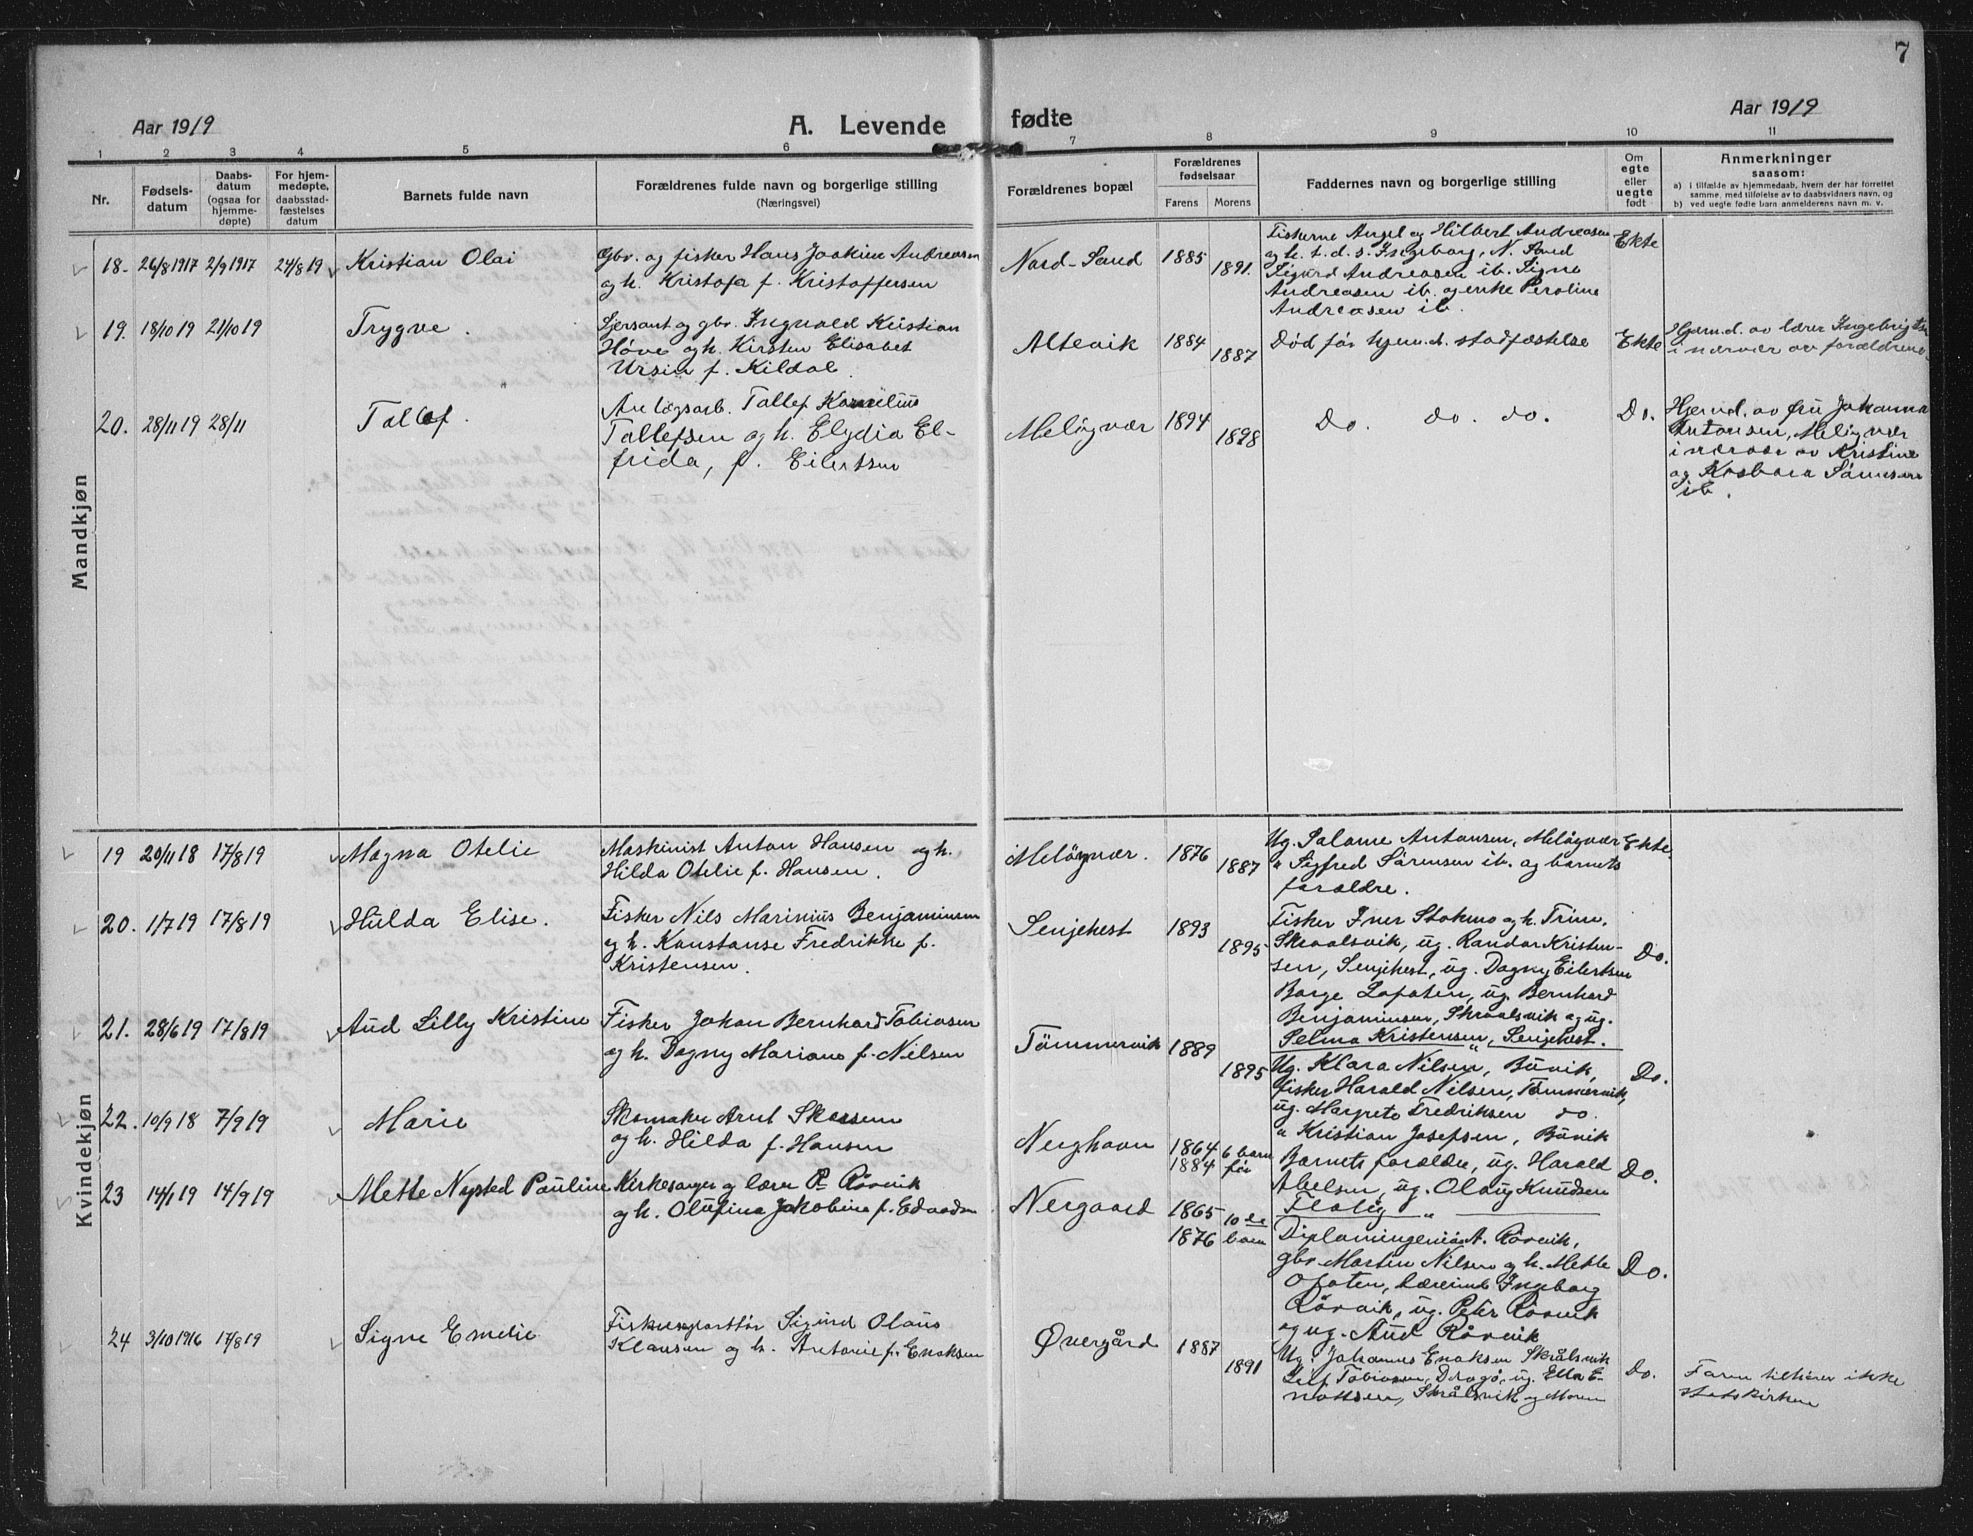 7
Aar 1919
A. Levende fødte
Aar 1919
1 2 3 4 5 6 7 8 9 10 11
Nr.
Fødsels-
datum
Daabs-
datum
(ogsaa for
hjemme-
døpte)
For hjem-
medøpte,
daabsstad-
fæstelses
datum
Barnets fulde navn
Forældrenes fulde navn og borgerlige stilling
(Næringsvei)
Forældrenes bopæl
Forældrenes
fødselsaar
Farens Morens
Faddernes navn og borgerlige stilling
Om
egte
eller
uegte
født
Anmerkninger
saasom:
a) i tilfælde av hjemmedaab, hvem der har forrettet
samme, med tilføielse av to daabsvidners navn, og
b) ved uegte fødte barn anmelderens navn m. v.
Mandkjøn
18. 26/8 1917 2/9 1917 24/8 19 Kristian Olai
Gbr. og fisker Hans Joakim Andreasen
og h. Kristofa f. Kristoffersen
Nord-Sand 1885 1891.
Fiskerne Angel og Hilbert Andreasen
og h. t. d. s. Ingeborg, N. Sand
Sigurd Andreasen ib. Signe
Andreasen ib. og enke Peroline
Andreasen ib.
Ekte
19. 18/10 19 21/10 19 Trygve.
Sjersant og gbr. Ingvald Kristian
Høve og h. Kirsten Elisabet
Ursin f. Kildal.
Altevik 1884 1887
Død før hjem.d. stadfæstelse
Ekte
Hjem.d. av lærer Ingebrigtsen
i nærvær av forældrene
20. 28/11 19 28/11 Tallef
Anlægsarb. Tallef Kornelius
Tallefsen og h. Elydia El-
frida, f. Eilertsen
Meløyvær 1894 1898
Do. do. do.
Do.
Hjemd. av fru Johanna
Antonsen, Meløyvær
i nærvær av Kristine
og Kasbara Sørensen
ib.
Kvindekjøn
19 20/11 18 17/8 19 Magna Otelie
Maskinist Anton Hansen og h.
Hilda Otelie f. Hansen.
Meløyvær. 1876 1887
Ug. Salome Antonsen, Meløyvær
" Sigfred Sørensen ib. og barnets
forældre.
Ekte.
20. 1/7 19 17/8 19 Hulda Elise.
Fisker Nils Marinius Benjaminsen
og h. Konstanse Fredrikke f.
Kristensen.
Senjehest 1893 1895
Fisker Iver Stokmo og h. Trine.
Skraalsvik, ug. Randor Kristen-
sen, Senjehest, ug. Dagny Eilertsen
Borge Lofoten, ug. Bernhard
Benjaminsen, Skraalsvik og ug.
Selma Kristensen, Senjehest.
Do.
21. 28/6 19 17/8 19 Aud Lilly Kristine
Fisker Johan Bernhard Tobiasen
og h. Dagny Mariane f. Nielsen
Tømmervik 1889 1895
Ug. Klara Nilsen, Bövik,
fisker Harald Nilsen, Tømmervik,
ug. Margrete Fredriksen do.
" Kristian Josefsen, Bövik
Do.
22. 10/9 18 7/9 19 Marie
Skomaker Arnt Skarsem
og h. Hilda f. Hansen
Nerghavn 1864 1884 6 barn før
Barnets forældre, ug. Harald
Abelsen, ug. Olaug Knudsen
Flaug
Do.
23 14/1 19 14/9 19 Mette Nysted Pauline
Kirkesanger og lærer P. Rørvik
og h. Olufina Jakobine f. Edvardsen
Nergaard 1865 1876 10de barn
Diplomingeniør A. Rørvik,
gbr. Martin Nilsen og h. Mette
Ofoten, lærerinde Ingeborg
Rørvik, ug. Peter Rørvik
og ug. Aud Rørvik
Do.
24 3/10 1916 17/8 19 Signe Emelie
Fiskeexportør Sigurd Olaus
Klausen og h. Antonie f. Enoksen
Øvergård 1887 1891
Ug. Johannes Enoksen Skrålsvik
Leif Tobiasen, Dragø, ug. Ella E-
noksen, Skrålsvik og Moren
Do.
Faren tilhører ikke
statskirken